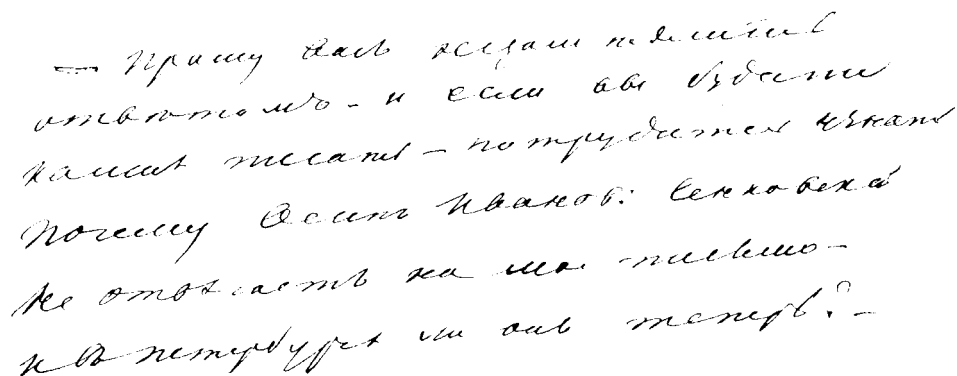 — Прошу Васъ не замедлить
отвѣтомъ — и если вы будете
ко мнѣ писать — потрудитесь узнать
почему Осипъ Иванов: Сенковскій
не отвѣчаетъ на мое письмо —
и въ Петербургѣ ли онъ теперь? —